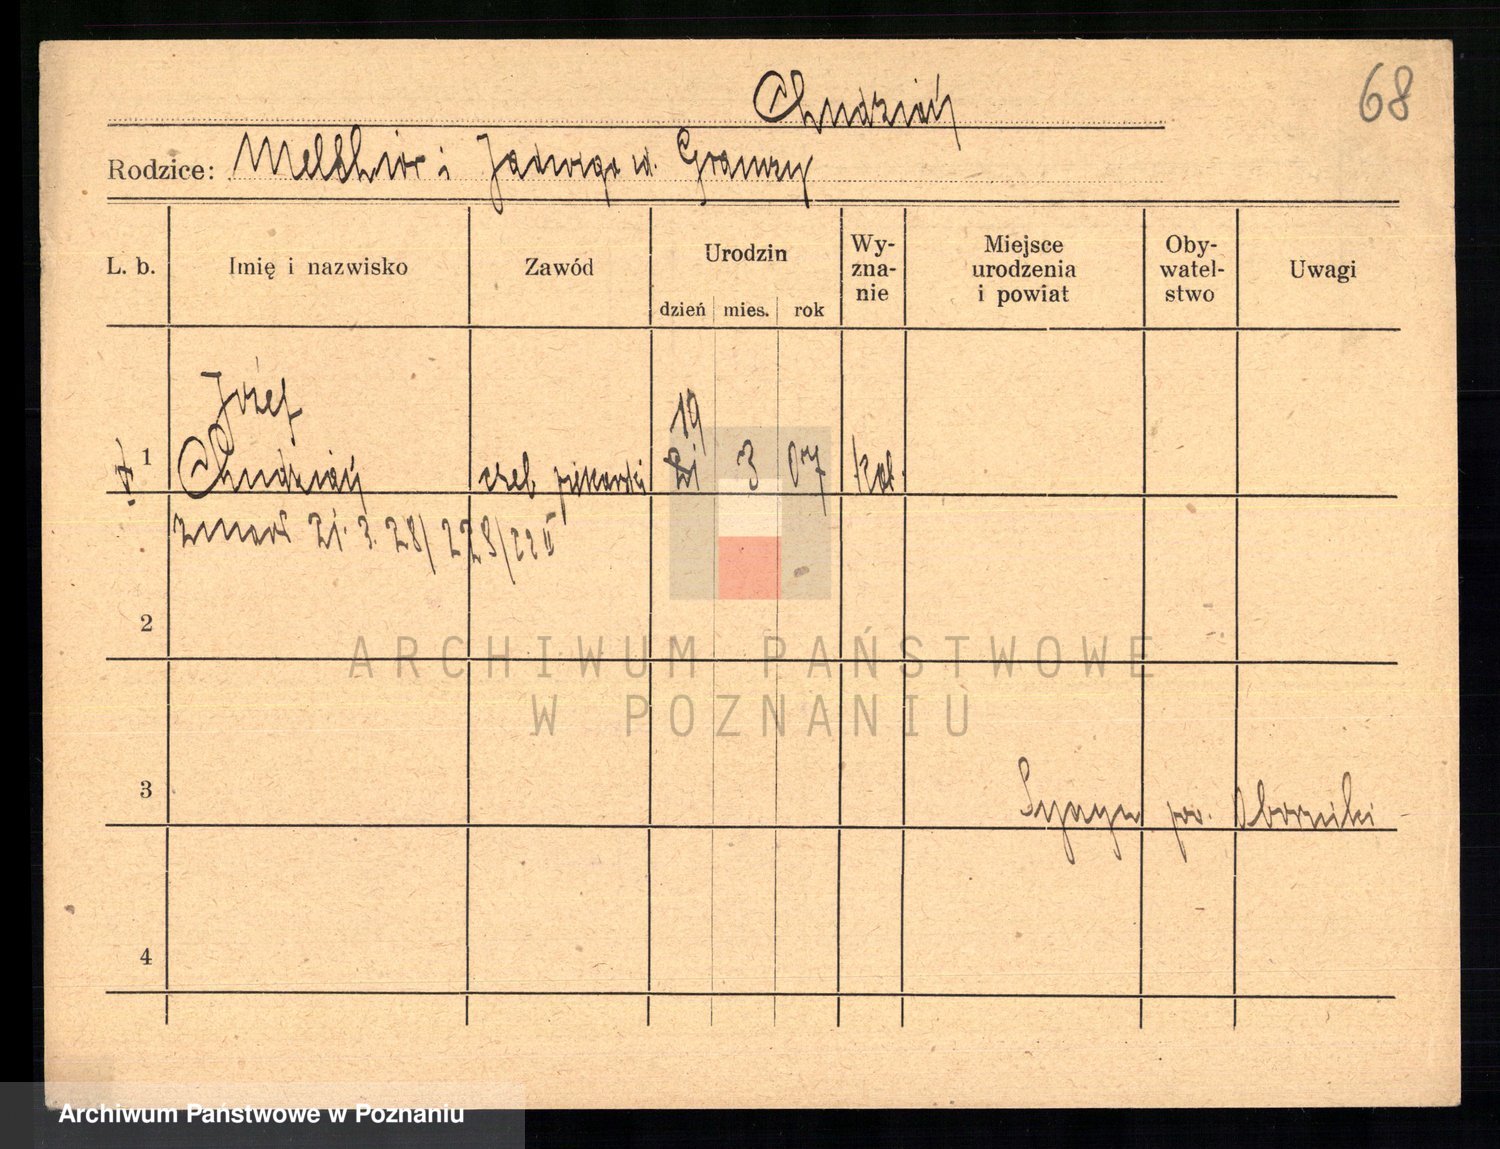 68
Chudziań
Rodzice: Melchior i Jadwiga
L. b. Imię i nazwisko Zawód Urodzin dzień mies. rok Wy-zna-nie Miejsce urodzenia i powiat Oby-watel-stwo Uwagi
Józef
19
1 Chudziań czel. piekarski 3 07 kat.
zmarł 21. 3. 28/
2
ARCHIWUM PAŃSTWOWE
W POZNANIU
3 pow. Oborniki
4
Archiwum Państwowe w Poznaniu